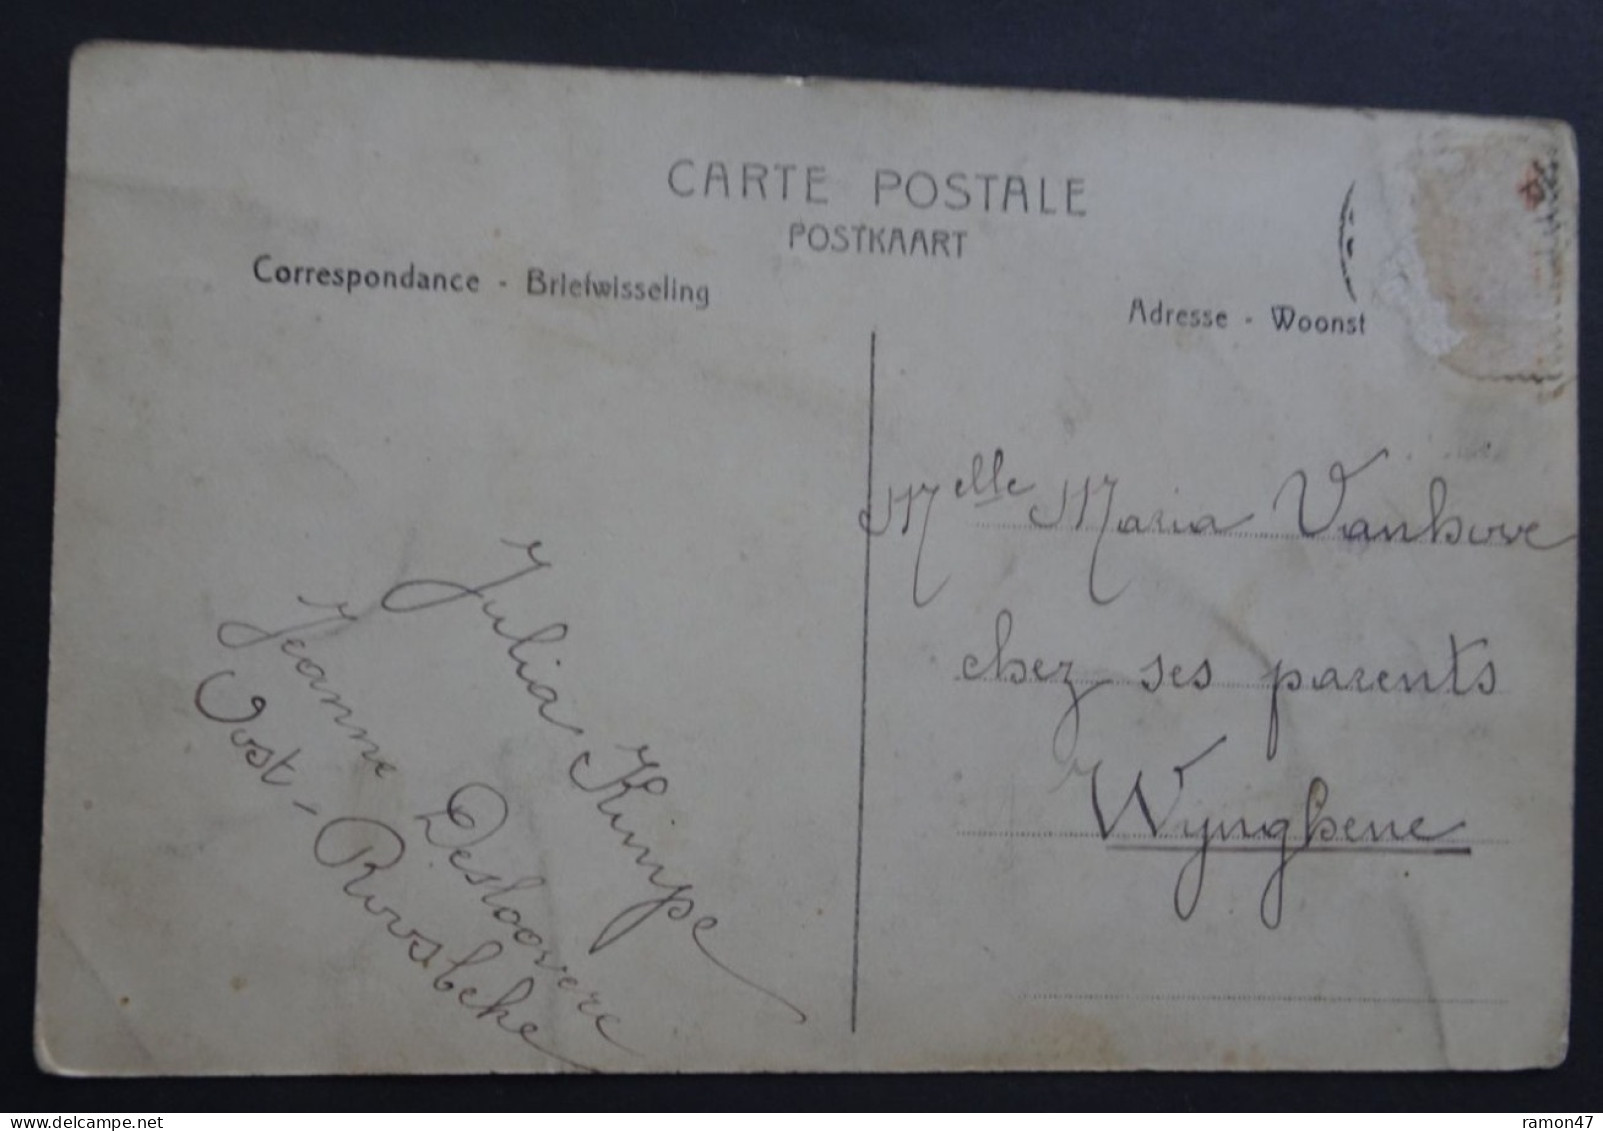 CARTE POSTALE
POSTKAART
Correspondance - Briefwisseling
Adresse - Woonst
Julia Kimpe
Jeanne Desloovere
Oost-Roosbeke
Melle Maria Vanhove
chez ses parents
Wynghene
delcampe.net
ramon47